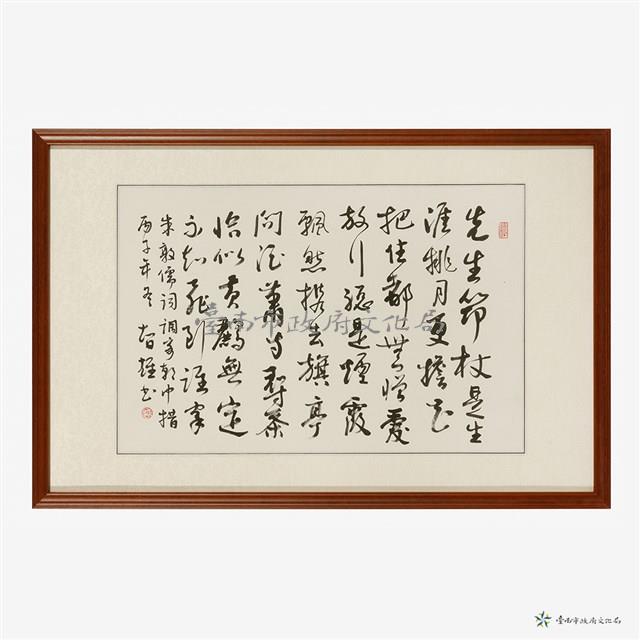 先生筇杖是生
涯挑月更擔花
把住都無憎愛
放行總是煙霞
飄然攜去旗亭
問酒蕭寺尋茶
恰似黃鸝無定
不知飛到誰家
朱敦儒詞調寄朝中措
丙子年冬 智書
臺南市政府文化局
臺南市政府文化局